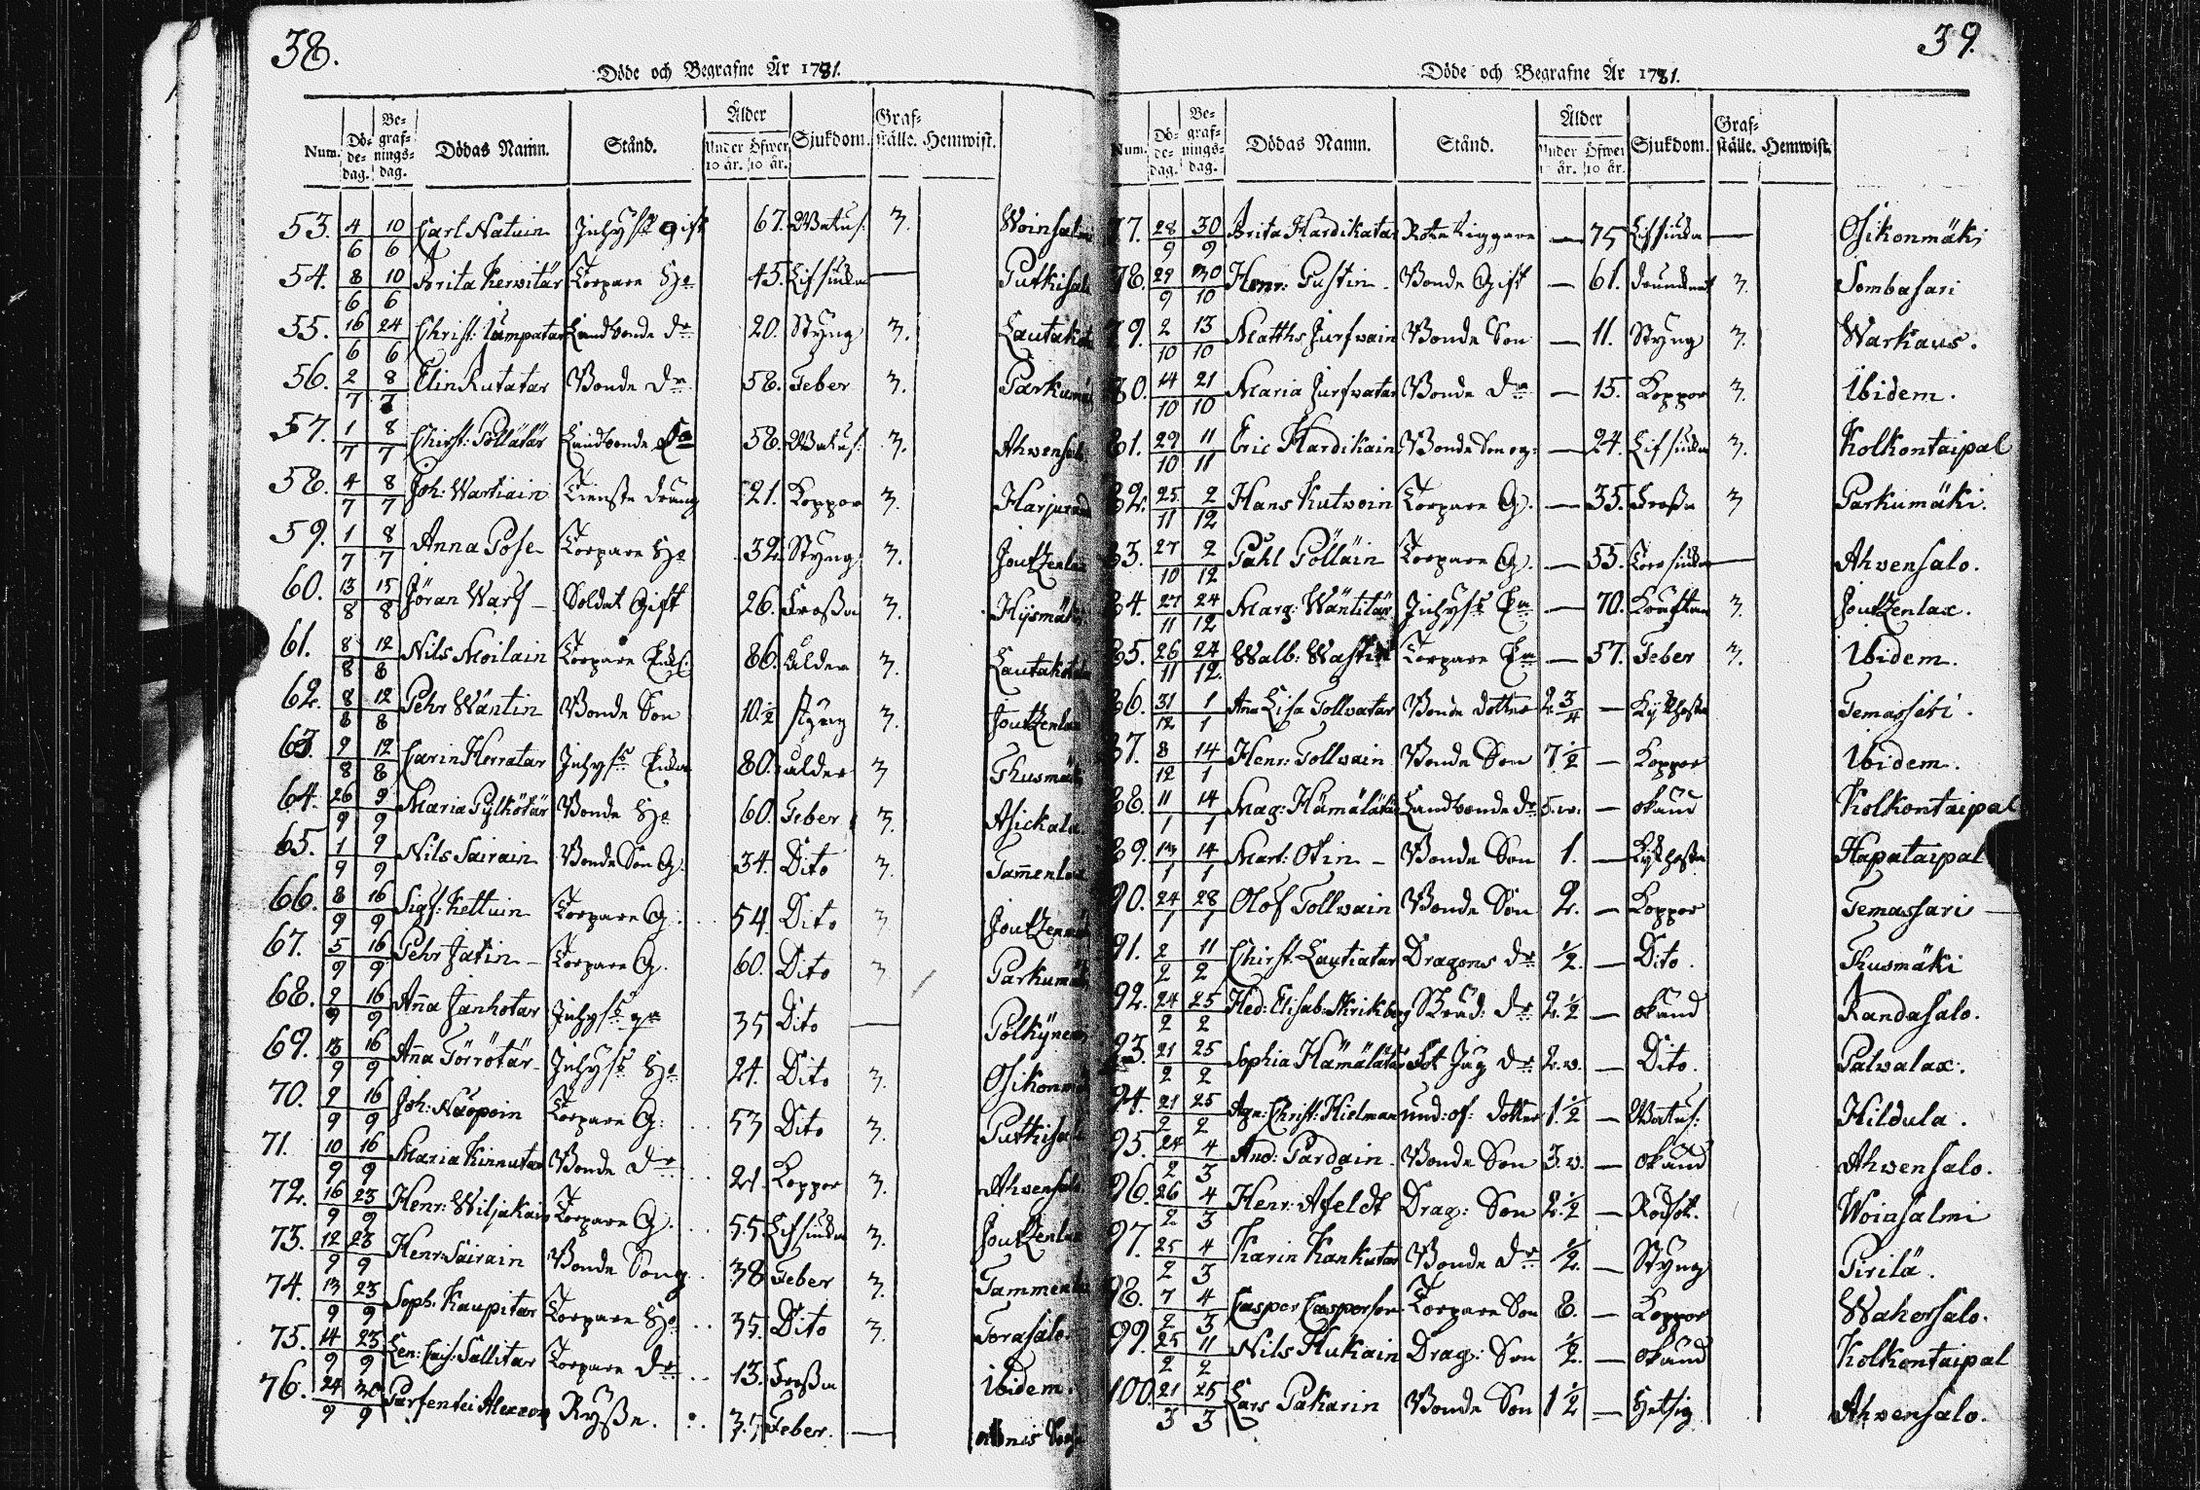 38.
Döde och Begrafne År 1781.
Num. Dö-de-dag. Be-graf-nings-dag. Dödas Namn. Stånd. Ålder Under 10 år. Öfwer 10 år. Sjukdom. Graf-ställe. Hemwist.
53. 4/6 10/6 Carl Natuin Inhyses Gift 67. Watus: 3. Woinsalm
54. 8/6 10/6 Brita Kerwitär Torpare H:o 45. Lifsiuka — Putkisal
55. 16/6 24/6 Christ: Lampatar Landbonde d:r 20. Styng 3. Lautakot
56. 2/7 8/7 Elin Rutatar Bonde d:r 58. Feber 3. Parkumä
57. 1/7 8/7 Christ: Pöllätär Landbonde 58. Watus: 3. Ahwensal
58. 4/7 8/7 Joh: Wartiain Tienste dräng 21. Koppor 3. Harjurand
59. 1/7 8/7 Anna Pose Torpare H:o 32. Styng 3. Joutzenlax
60. 13/8 15/8 Jöran Warf — Soldat Gift 26. Frossa 3. Hijsmäki
61. 8/8 12/8 Nils Moilain Torpare Enkl: 86. ålder 3. Lautakotal
62. 8/8 12/8 Pehr Wäntin Bonde Son 10.½ styng 3. Joutzenlax
63. 9/8 12/8 Carin Herratar Inhyses Enka 80. ålder 3 Thusmäki
64. 26/9 9/9 Maria Pylkötär Bonde H:o 60. Feber 3. Asickala
65. 1/9 9/9 Nils Sairain Bonde Son G. 34. Dito 3. Tamenlax
66. 8/9 16/9 Sigf: Kettuin Torpare G. 54. Dito 3 Joutzenm
67. 5/9 16/9 Pehr Jatin — Torpare G. 60. Dito 3 Parkumäk
68. 2/9 16/9 Anna Janhotar Inhyses 35 Dito — Pölkynem
69. 13/9 16/9 Anna Törrötär Inhyses H:o 24. Dito 3. Osikonmä
70. 9/9 16/9 Joh: Nuopoin Torpare G: 53 Dito 3. Putkisal
71. 10/9 16/9 Maria Kinnutar Bonde D:r 21. Koppor 3. Ahwensalo.
72. 16/9 23/9 Henr: Wiljakain Torpare G. 55 Lifsiuka 3. Joutzenlax
73. 12/9 23/9 Henr: Sairain Bonde Son g. 38 Feber 3. Tammenla
74. 13/9 23/9 Soph: Kaupitar Torpare H:o 35. Dito 3. Torasalo.
75. 14/9 23/9 Sallitar Torpare D:r 13. Frossa Ibidem.
76. 24/9 30/9 Parfentei Ryße. 37 Feber. —
39.
Döde och Begrafne År 1781.
Num. Dö-de-dag. Be-graf-nings-dag. Dödas Namn. Stånd. Ålder Under 10 år. Öfwer 10 år. Sjukdom. Graf-ställe. Hemwist.
77. 28/9 30/9 Brita Hardikatar Rote tiggare — 75 Lifsiuka — Osikonmäki
78. 29/9 30/10 Henr: Pustin Bonde Gift — 61. drunknat 3. Sombasari
79. 2/10 13/10 Matths Jurfwain Bonde Son — 11. Styng 3. Warkaus.
80. 14/10 21/10 Maria Jurfwatar Bonde d:r — 15. Koppor 3. Ibidem.
81. 29/10 11/11 Eric Hardikain Bonde Son og: — 24. Lifsiuka 3. Kolkontaipal
82. 25/11 2/12 Hans Kutwoin Torpare G. — 35. Frossa 3 Parkumäki.
83. 27/10 2/12 Påhl Pölläin Torpare G. — 55. — Ahvensalo.
84. 27/11 24/12 Marg: Wäntitär Inhyses En — 70. 3. Joutzenlax.
85. 26/11 24/12 Walb: Torpare En — 57. Feber 3. Ibidem.
86. 31/12 1/1 Ana Lisa Tollvatar Bonde dotter 2.¾ — Kikhosta Temassari.
87. 8/12 14/1 Henr: Tollvain Bonde Son 7.½ — Koppor Ibidem.
88. 11/1 14/1 Mag: Hämälätär Landbonde d:r 5.w. — okänd Kolkontaipal
89. 13/1 14/1 Mart: Otin — Bonde Son 1. — Kikhosta Hapataipal
90. 24/1 28/1 Olof Tollvain Bonde Son 2. — Koppor Temassari —
91. 2/2 11/2 Christ: Lautiatar Dragons d:r ½. — Dito. Thusmäki
92. 24/2 25/2 Hed: Elisab: Skrikberg d:r 2.½ — okänd Randasalo.
93. 21/2 25/2 Sophia Hämälätär d:r 2.w. — Dito. Patvalax.
94. 21/2 25/2 Christ: Hielman und: of: dotter 1½ — Watus: Hildula.
95. 24/2 4/3 And: Pardain Bonde Son 3.w. — okänd Ahvensalo.
96. 26/2 4/3 Henr: Afeldt Drag: Son 2.½ — Rödsot. Woinsalmi
97. 25/2 4/3 Karin Kankutar Bonde d:r ½. — Styng Pirilä.
98. 7/2 4/3 Casper Casperson Torpare Son 8. — Koppor Wahersalo.
99. 25/2 11/2 Nils Hukain Drag: Son ½. — okänd Kolkontaipal
100. 21/3 25/3 Lars Pakarin Bonde Son 1½ — Hetsig Ahvensalo.